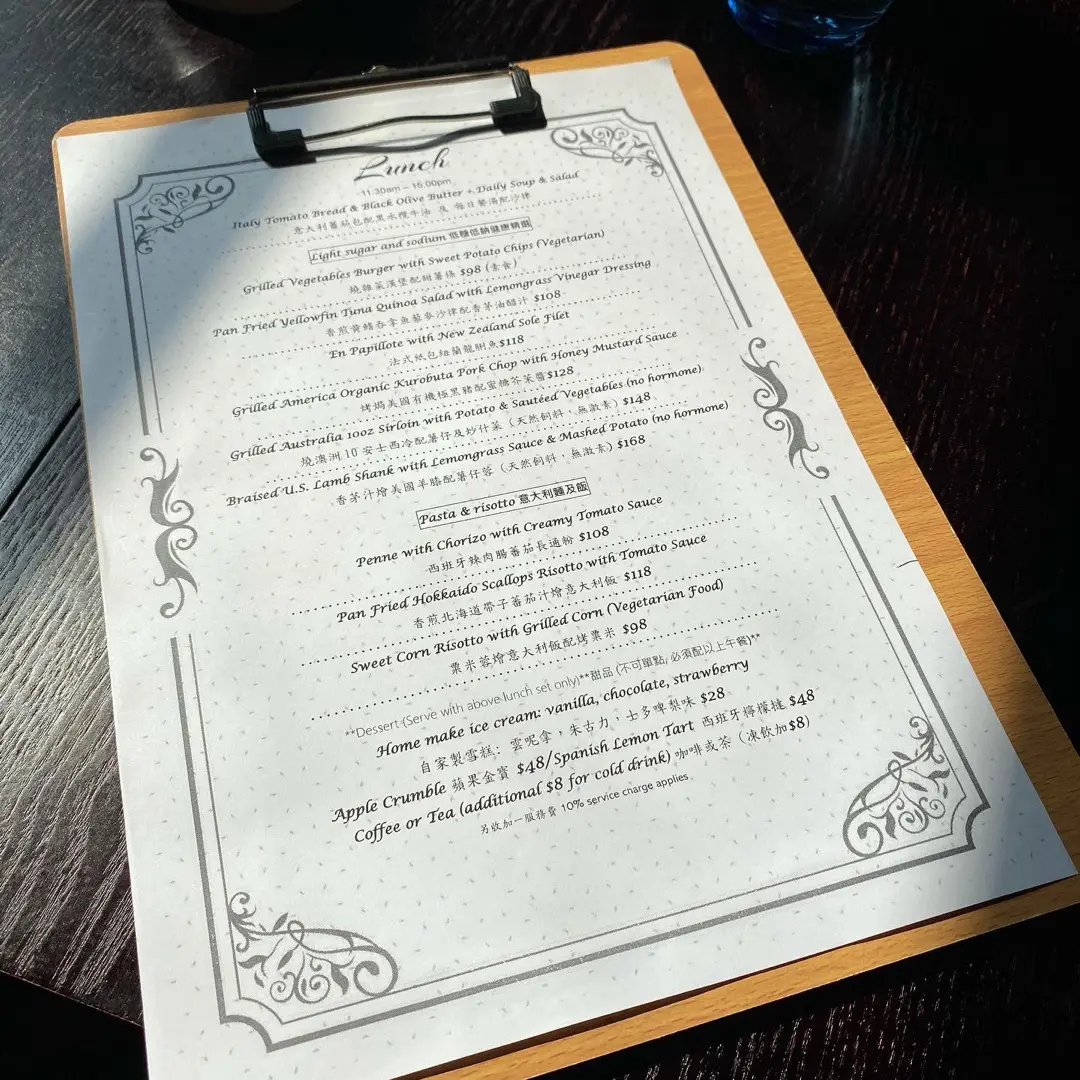 Lunch
11:30am – 16:00pm
Italy Tomato Bread & Black Olive Butter + Daily Soup & Salad
意大利蕃茄包配黑水欖牛油 及 每日餐湯配沙律
Light sugar and sodium 低糖低鈉健康精選
Grilled Vegetables Burger with Sweet Potato Chips (Vegetarian)
燒雜菜漢堡配甜薯條 $98 (素食)
Pan Fried Yellowfin Tuna Quinoa Salad with Lemongrass Vinegar Dressing
香煎黃鰭吞拿魚藜麥沙律配香茅油醋汁 $108
En Papillote with New Zealand Sole Filet
法式紙包紐蘭龍脷魚$118
Grilled America Organic Kurobuta Pork Chop with Honey Mustard Sauce
烤焗美國有機極黑豬配蜜糖芥茉醬$128
Grilled Australia 10oz Sirloin with Potato & Sautéed Vegetables (no hormone)
燒澳洲 10 安士西冷配薯仔及炒什菜 (天然飼料，無激素) $148
Braised U.S. Lamb Shank with Lemongrass Sauce & Mashed Potato (no hormone)
香茅汁燴美國羊膝配薯仔蓉 (天然飼料，無激素) $168
Pasta & risotto 意大利麵及飯
Penne with Chorizo with Creamy Tomato Sauce
西班牙辣肉腸蕃茄長通粉 $108
Pan Fried Hokkaido Scallops Risotto with Tomato Sauce
香煎北海道帶子蕃茄汁燴意大利飯 $118
Sweet Corn Risotto with Grilled Corn (Vegetarian Food)
粟米蓉燴意大利飯配烤粟米 $98
**Dessert (Serve with above lunch set only)**甜品 (不可單點, 必須配以上午餐)**
Home make ice cream: vanilla, chocolate, strawberry
自家製雪糕: 雲呢拿，朱古力，士多啤梨味 $28
Apple Crumble 蘋果金寶 $48/Spanish Lemon Tart 西班牙檸檬撻 $48
Coffee or Tea (additional $8 for cold drink) 咖啡或茶 (凍飲加$8)
另收加一服務費 10% service charge applies